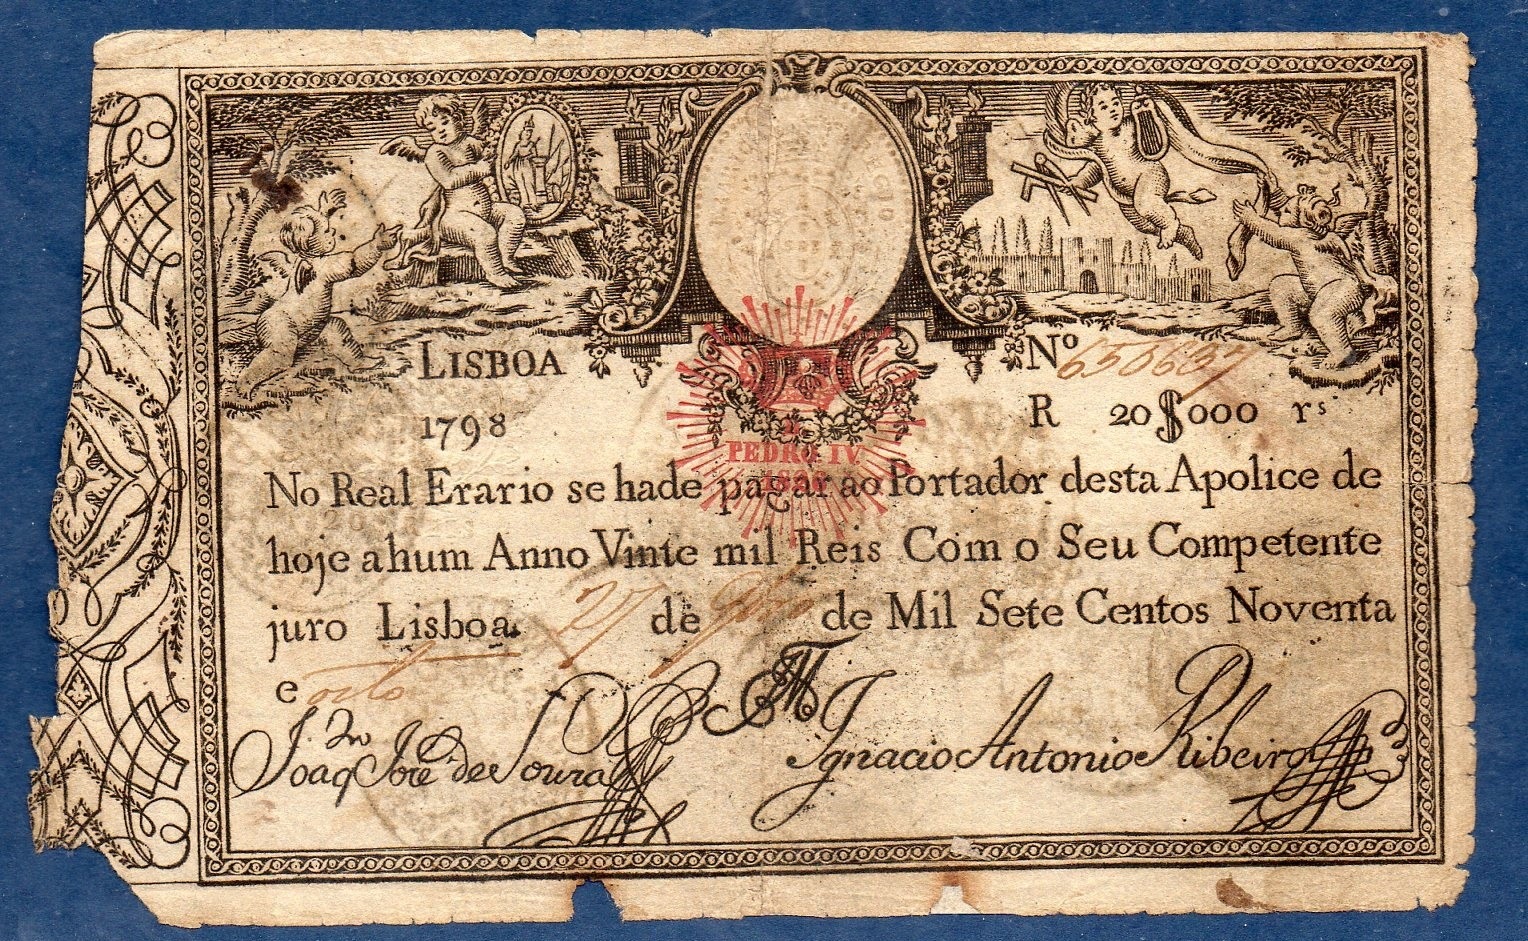 LISBOA
Nº 656637
1798
R 20$000 rs
PEDRO IV
No Real Erario se hade pagar ao Portador desta Apolice de
hoje a hum Anno Vinte mil Reis Com o Seu Competente
juro Lisboa 27 de 9bro de Mil Sete Centos Noventa
e oito
Joaqm José de Souza
Ignacio Antonio Ribeiro